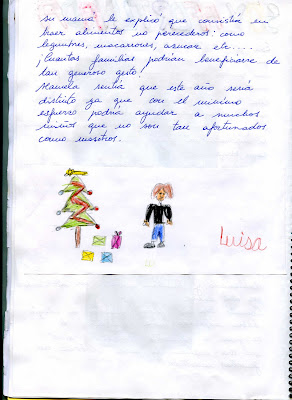 su mamá le explicó que consistía en
traer alimentos no perecederos: como
legumbres, macarrones, azucar etc....
¡Cuantas familias podrian beneficiarse de
tan generoso gesto!
Manuela sentía que este año será
distinto ya que con el mínimo
esfuerzo podría ayudar a muchos
niños que no son tan afortunados
como nosotros.
Luisa